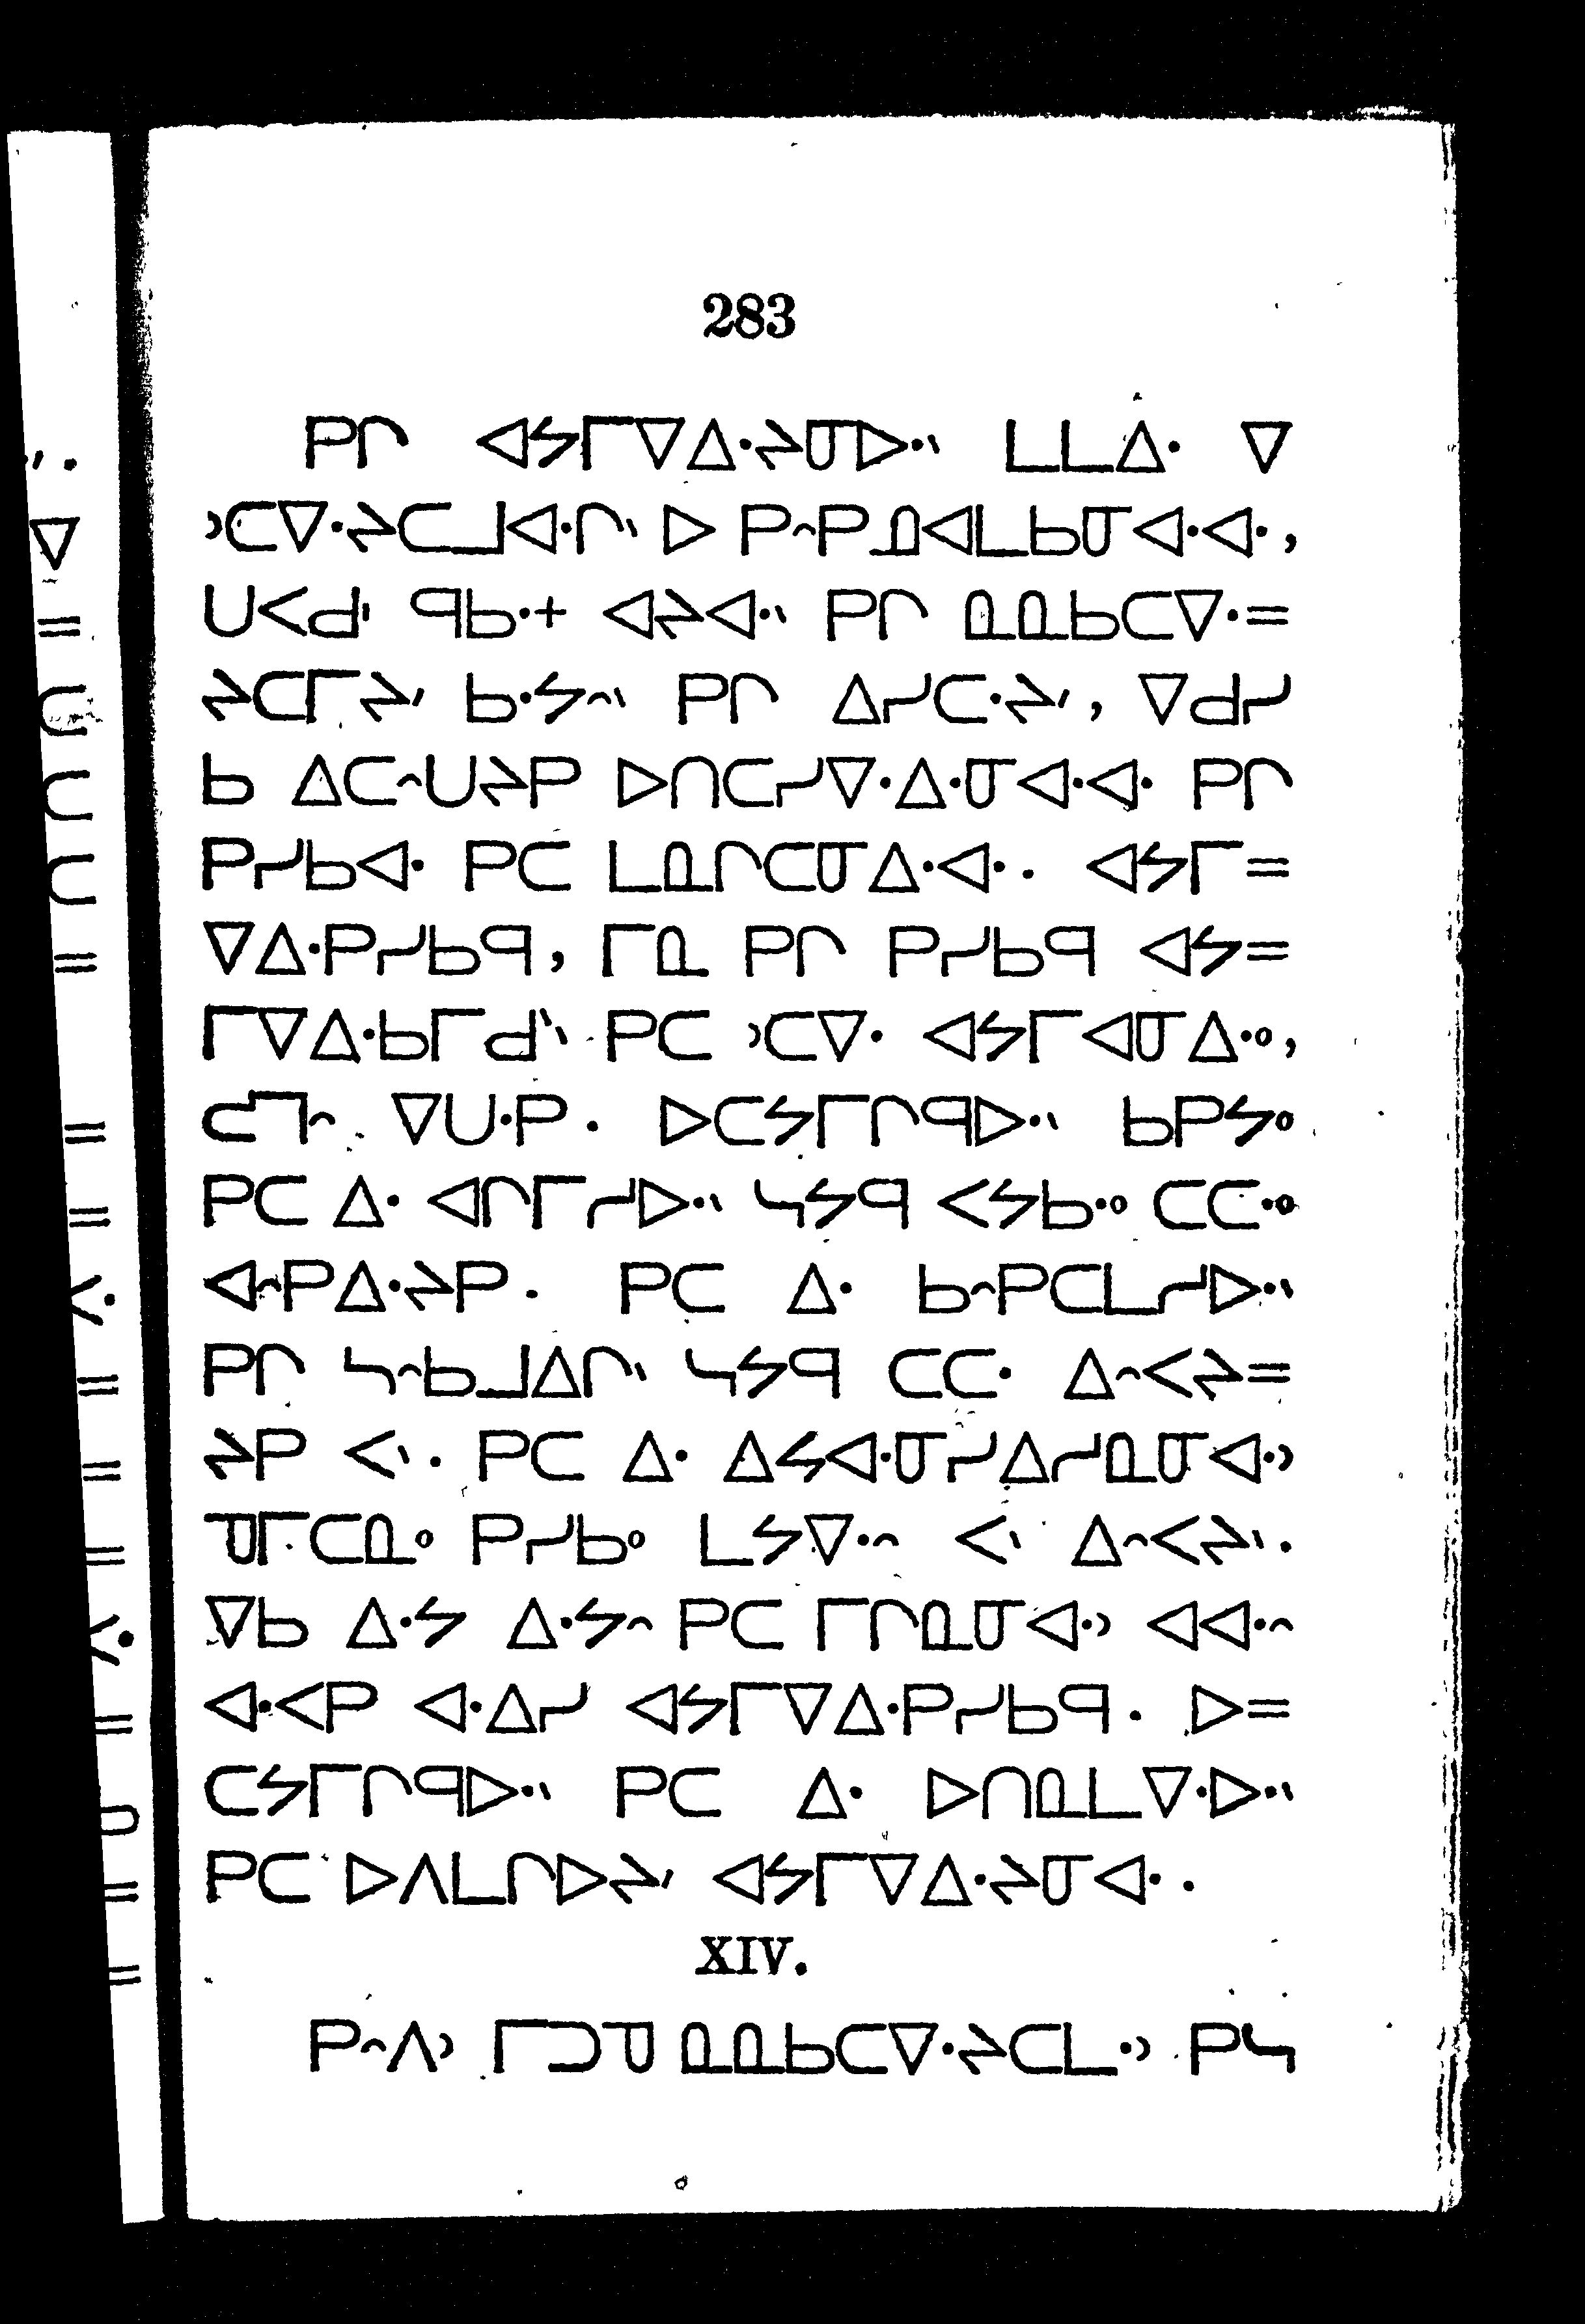 283
ᑭᒋ ᐊᔭᒥᐁᐃᐧᔨᓂᐅᐧᐠ ᒪᒪᐃᐧ ᐁ
ᐣᑕᐁᐧᔨᑕᒧᐊᐧᒋᐠ ᐅ ᑭᐢᑭᓄᐊᒪᑲᓂᐊᐧᐊᐧ,
ᑌᐸᑯᑊ ᑫᑲᐧ+ ᐊᔨᐊᐧᐠ ᑭᒋ ᓇᓇᑲᑕᐁᐧ=
ᔨᑕᒥᔨᐟ ᑲᐧᔭᐢᐠ ᑭᒋ ᐃᓯᑕᐧᔨᐟ, ᐁᑯᓯ
ᑲ ᐃᑕᐢᑌᔨᑭ ᐅᑎᑕᓯᐁᐧᐃᐧᓂᐊᐧᐊᐧ ᑭᒋ
ᑭᓯᑲᐊᐧ ᑭᑕ ᒪᓇᒋᑕᓂᐃᐧᐊᐧ. ᐊᔭᒥ=
ᐁᐃᐧᑭᓯᑲᑫ, ᒥᓇ ᑭᒋ ᑭᓯᑲᑫ ᐊᔭ=
ᒥᐁᐃᐧᑲᒥᑯᐠᐠ ᑭᑕ ᐣᑕᐁᐧ ᐊᔭᒥᐊᓂᐃᐧᐤ,
ᑕᒣᐢ ᐁᑌᐧᑭ. ᐅᑕᔭᒥᒋᑫᐅᐧᐠ ᑲᑭᔭᐤ
ᑭᑕ ᐃᐧ ᐊᒋᒥᓱᐅᐧᐠ ᓭᔭᑫ ᐸᔭᑲᐧᐤ ᑕᑕᐧᐤ
ᐊᐢᑭᐃᐧᔨᑭ. ᑭᑕ ᐃᐧ ᑲᐢᑭᑕᒪᓱᐅᐧᐠ
ᑭᒋ ᓴᐢᑲᒧᐃᒋᐠ ᓭᔭᑫ ᑕᑕᐧ ᐃᐢᐸᔨ=
ᔨᑭ ᐸᐠ. ᑭᑕ ᐃᐧ ᐃᔦᐊᐧᓂᓯᐃᓱᓇᓂᐊᐧᐣ
ᓀᒥᑕᓇᐤ ᑭᓯᑲᐤ ᒪᔭᐁᐧᐢ ᐸᐠ ᐃᐢᐸᔨᐠ.
ᐁᑲ ᐃᐧᔭ ᐃᐧᔭᐢ ᑭᑕ ᒥᒋᓇᓂᐊᐧᐣ ᐊᐊᐧᐢ
ᐊᐧᐸᑭ ᐊᐧᐃᓯ ᐊᔭᒥᐁᐃᐧᑭᓯᑲᑫ. ᐅ=
ᑕᔭᒥᒋᑫᐅᐧᐠ ᑭᑕ ᐃᐧ ᐅᑎᓇᒪᐁᐧᐅᐧᐠ
ᑭᑕ ᐅᐱᒪᒋᐅᔨᐟ ᐊᔭᒥᐁᐃᐧᔨᓂᐊᐧ.
XIV.
ᑭᐢᐱᐣ ᒥᑐᓀ ᓇᓇᑲᑕᐁᐧᔨᑕᒪᐧᐣ ᑭᓭ